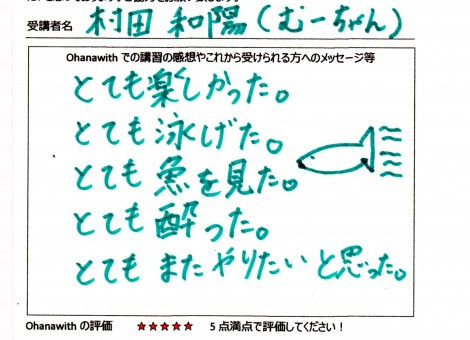 受講者名 村田 和陽(むーちゃん)
Ohanawith での講習の感想やこれから受けられる方へのメッセージ等
とても楽しかった。
とても泳げた。
とても魚を見た。
とても酔った。
とてもまたやりたいと思った。
Ohanawith の評価 ★★★★★ 5点満点で評価してください!